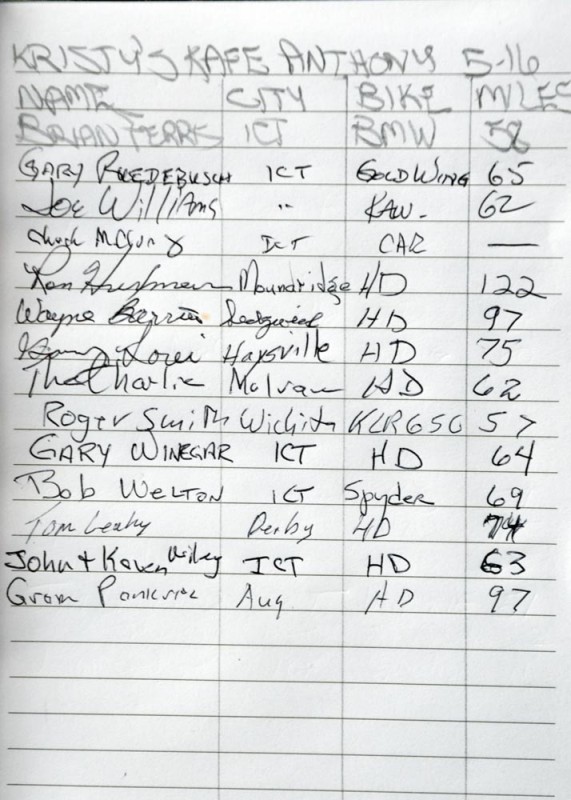 KRISTY'S KAFE ANTHONY 5-16
NAME CITY BIKE MILES
BRIAN FERRIS ICT BMW 58
GARY RUEDEBUSCH ICT GOLDWING 65
Joe Williams " KAW- 62
ICT CAR —
Ron Moundridge HD 122
Wayne Sedgwick HD 97
Haysville HD 75
Charlie Mulvane HD 62
Roger Smith Wichita KLR650 57
GARY WINEGAR ICT HD 64
Bob WELTON ICT Spyder 69
Tom Leahy Derby HD 74
John + Karen Wiley ICT HD 63
Aug HD 97